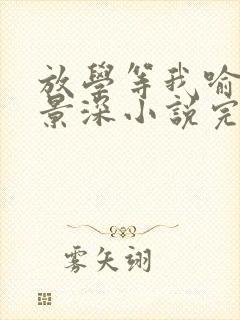 放學等我喻
景深小說完
雾矢翊